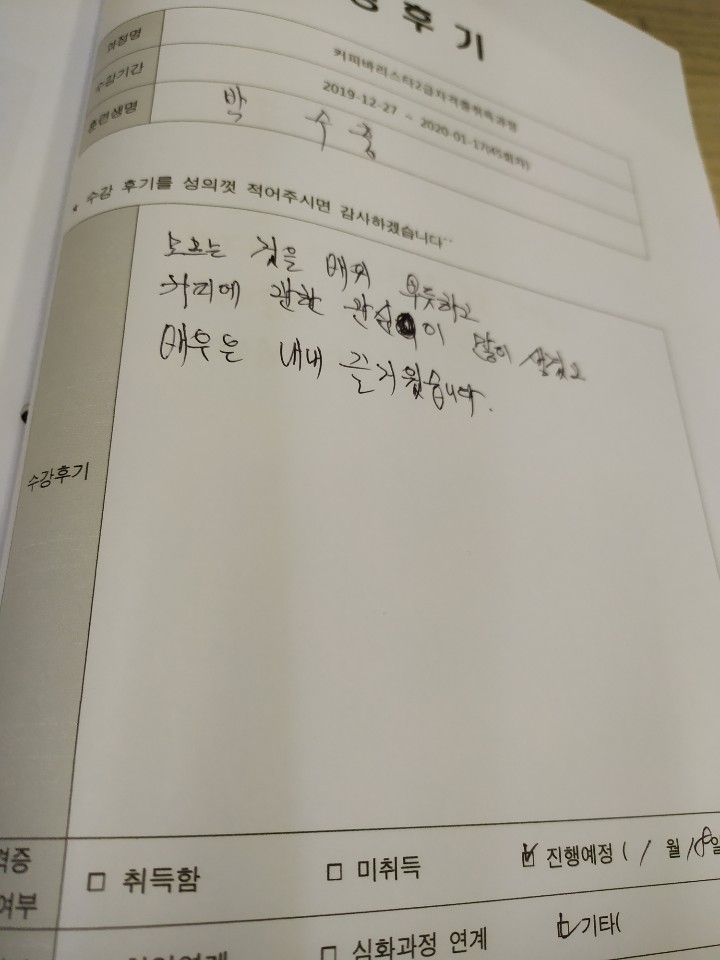 후기
과정명
커피바리스타2급자격증취득과정
수강기간
2019-12-27 ~ 2020-01-17(45회차)
훈련생명
박 수
수강 후기를 성의껏 적어주시면 감사하겠습니다~
모르는 것을 배워 뿌듯하고
커피에 관한 관심이 많이 생겼고
배우은 내내 즐거웠습니다.
수강후기
여부
□ 취득함
□ 미취득
☑ 진행예정 ( 1 월 18일
□ 심화과정 연계
☑ 기타(